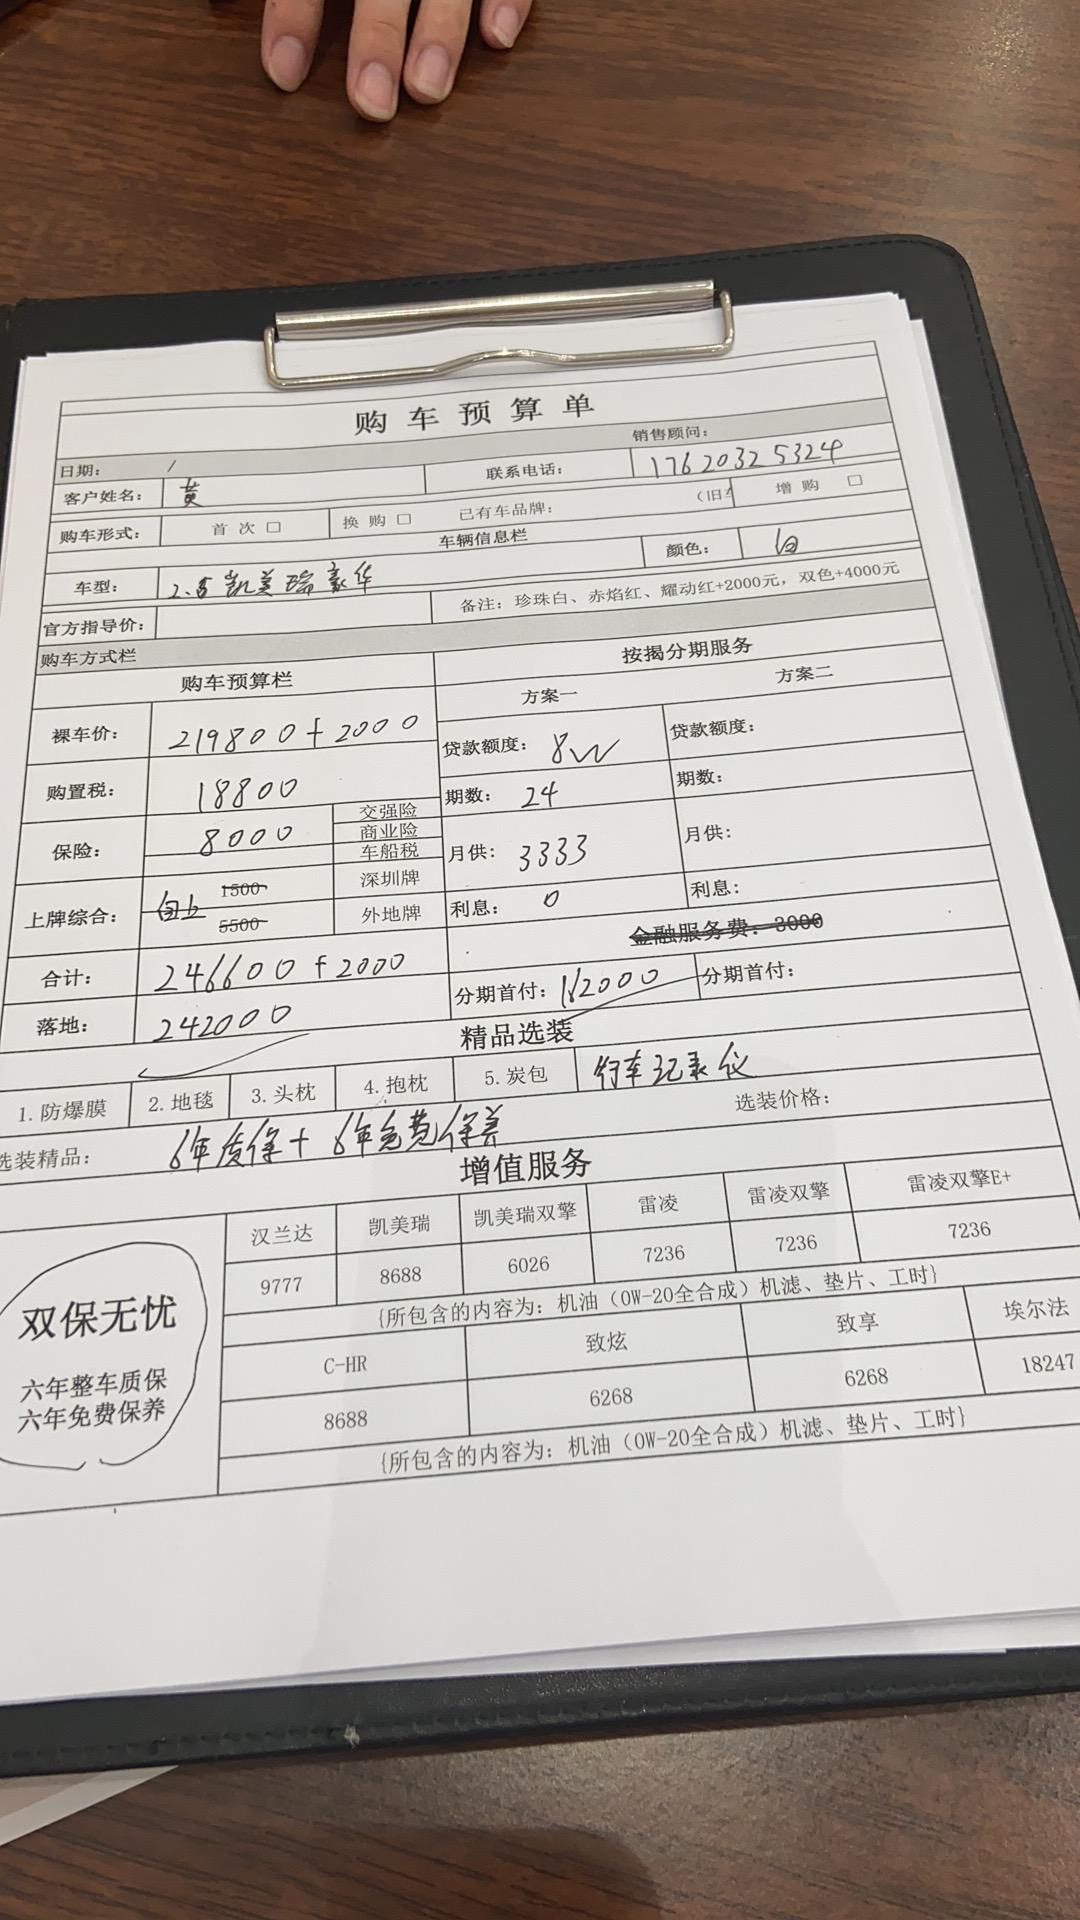 购车预算单
日期： / 销售顾问：
客户姓名： 黄 联系电话： 17620325324
购车形式： 首次 □ 换购 □ 已有车品牌： （旧车 增购 □
车辆信息栏
车型： 2.5凯美瑞豪华 颜色： 白
官方指导价： 备注：珍珠白、赤焰红、耀动红+2000元，双色+4000元
购车方式栏
购车预算栏 按揭分期服务
方案一 方案二
裸车价： 219800+2000 贷款额度： 8w 贷款额度：
购置税： 18800 期数： 24 期数：
保险： 8000 交强险 商业险 车船税 月供： 3333 月供：
上牌综合： 自上 1500 深圳牌 利息： 0 利息：
5500 外地牌 金融服务费：3000
合计： 246600+2000 分期首付： 162000 分期首付：
落地： 242000
精品选装
1.防爆膜 2.地毯 3.头枕 4.抱枕 5.炭包 行车记录仪
选装精品： 6年质保+6年免费保养 选装价格：
增值服务
双保无忧
六年整车质保
六年免费保养
汉兰达 凯美瑞 凯美瑞双擎 雷凌 雷凌双擎 雷凌双擎E+
9777 8688 6026 7236 7236 7236
{所包含的内容为：机油（0W-20全合成）机滤、垫片、工时}
C-HR 致炫 致享 埃尔法
8688 6268 6268 18247
{所包含的内容为：机油（0W-20全合成）机滤、垫片、工时}